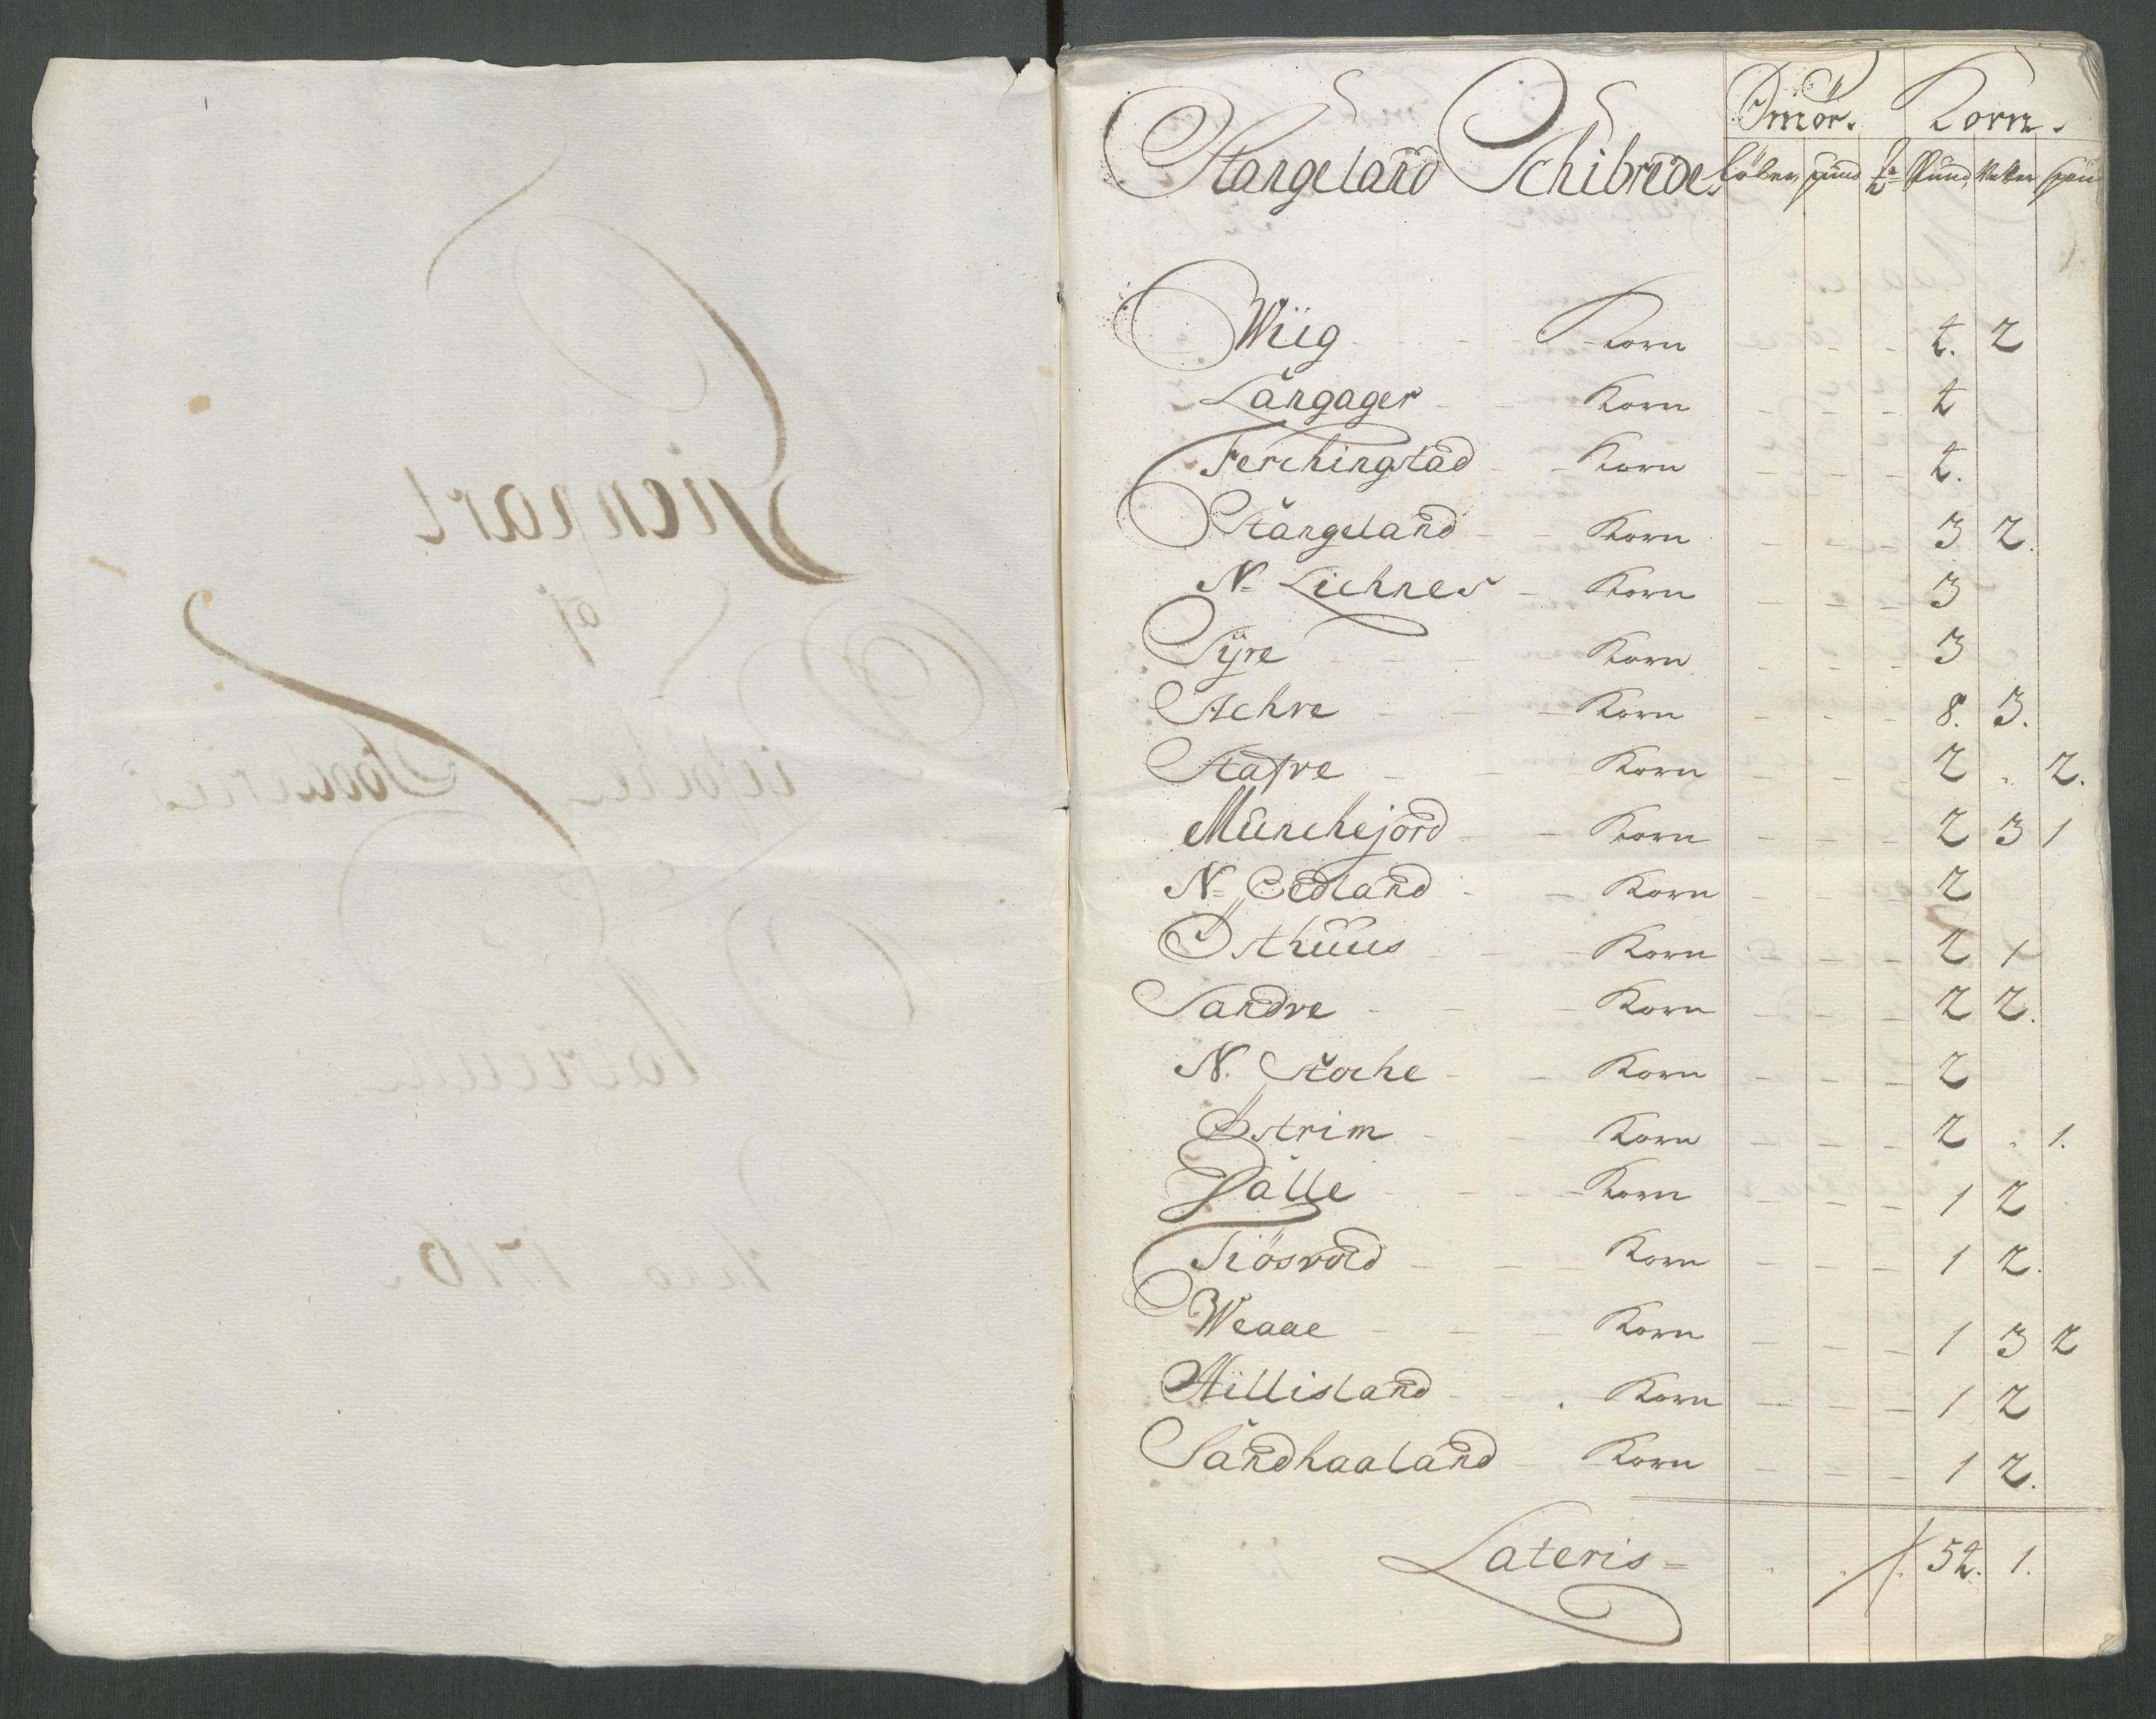 Gienpart
af
Anno 1716
Stangeland Schibrede
Smör. Korn.
Löber pund Pund Vetter span
Wiig - - - Korn - - - 4. 2
Langager - - Korn - - - 4
Ferchingstad - - Korn - - - 4.
Stangeland - - Korn - - - 3 2.
N= Lichnes - Korn - - - 3
Sÿre - - - Korn - - - 3
Achre - - - Korn - - - 8. 3.
Stafre - - - Korn - - - 2 . 2.
Munchejord - - Korn - - - 2 3 1
N= Eedland - - Korn - - - 2
Östhuus - - - Korn - - - 2 1
Sandve - - - Korn - - - 2 2.
N. Stoche - - Korn - - - 2
Östrim - - Korn - - - 2 . 1.
Dalle - - - Korn - - - 1 2
Tiösvold - - - Korn - - - 1 2.
Weaae - - - Korn - - - 1 3 2
Hillisland - - . Korn - - - 1 2
Sandhaaland - Korn - - - 1 2.
Lateris = . . . 54. 1.